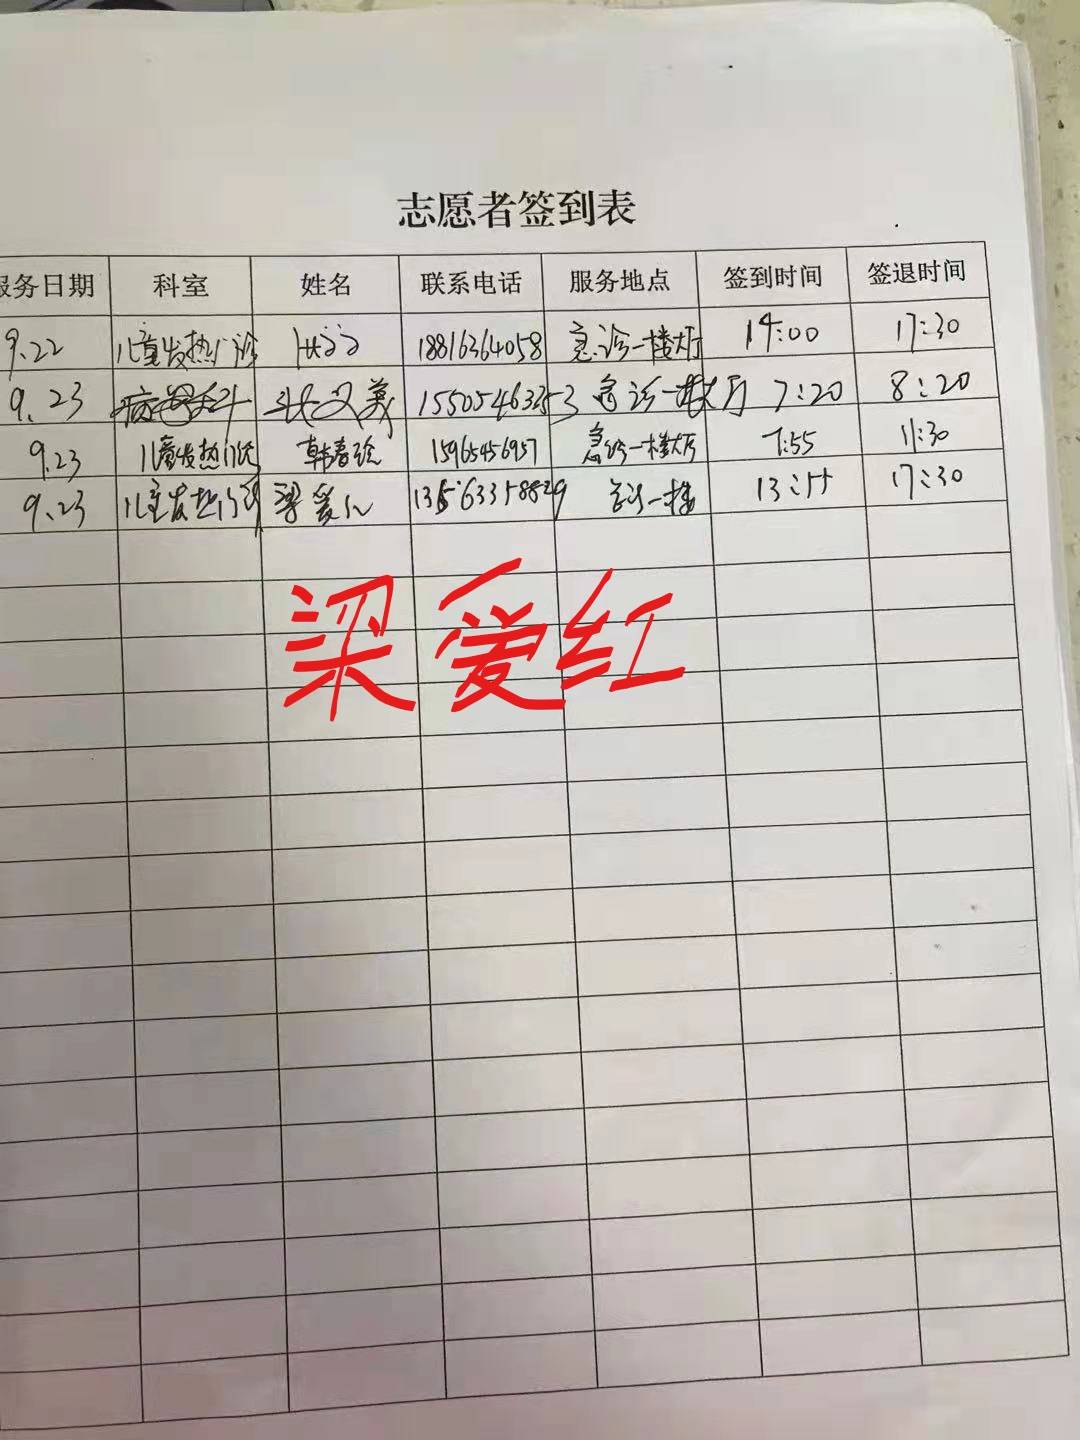 志愿者签到表
服务日期 科室 姓名 联系电话 服务地点 签到时间 签退时间
9.22 儿童发热门诊 18816364058 急诊一楼大厅 14:00 17:30
9.23 急诊一楼大厅 7:20 8:20
9.23 儿童发热门诊 韩春 15965456957 急诊一楼大厅 7:55 11:30
9.23 儿童发热门诊 梁爱红 急诊一楼 13:55 17:30
梁爱红